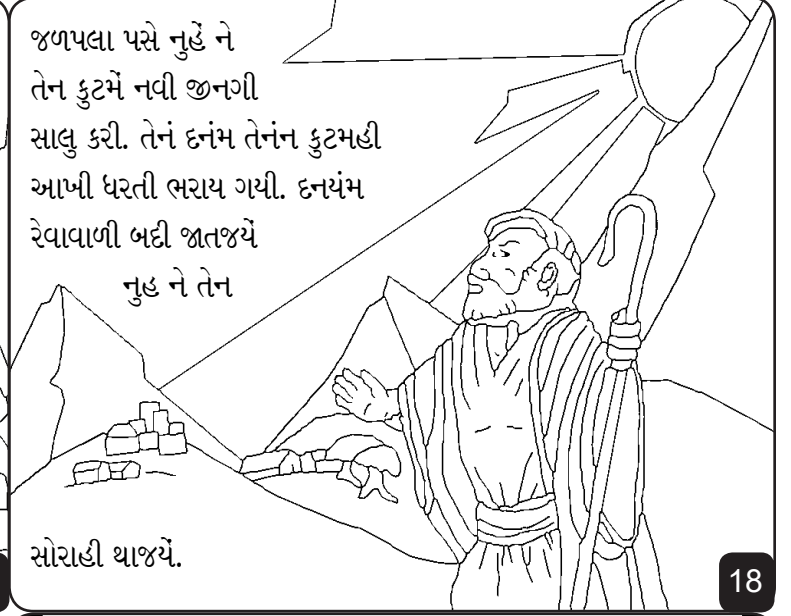 જળપલા પસે નુહેં ને
તેન કુટમેં નવી જીનગી
સાલુ કરી. તેનં દનંમ તેનંન કુટમહી
આખી ધરતી ભરાય ગયી. દનયંમ
રેવાવાળી બદી જાતજયેં
નુહ ને તેન
સોરાહી થાજયેં.
18